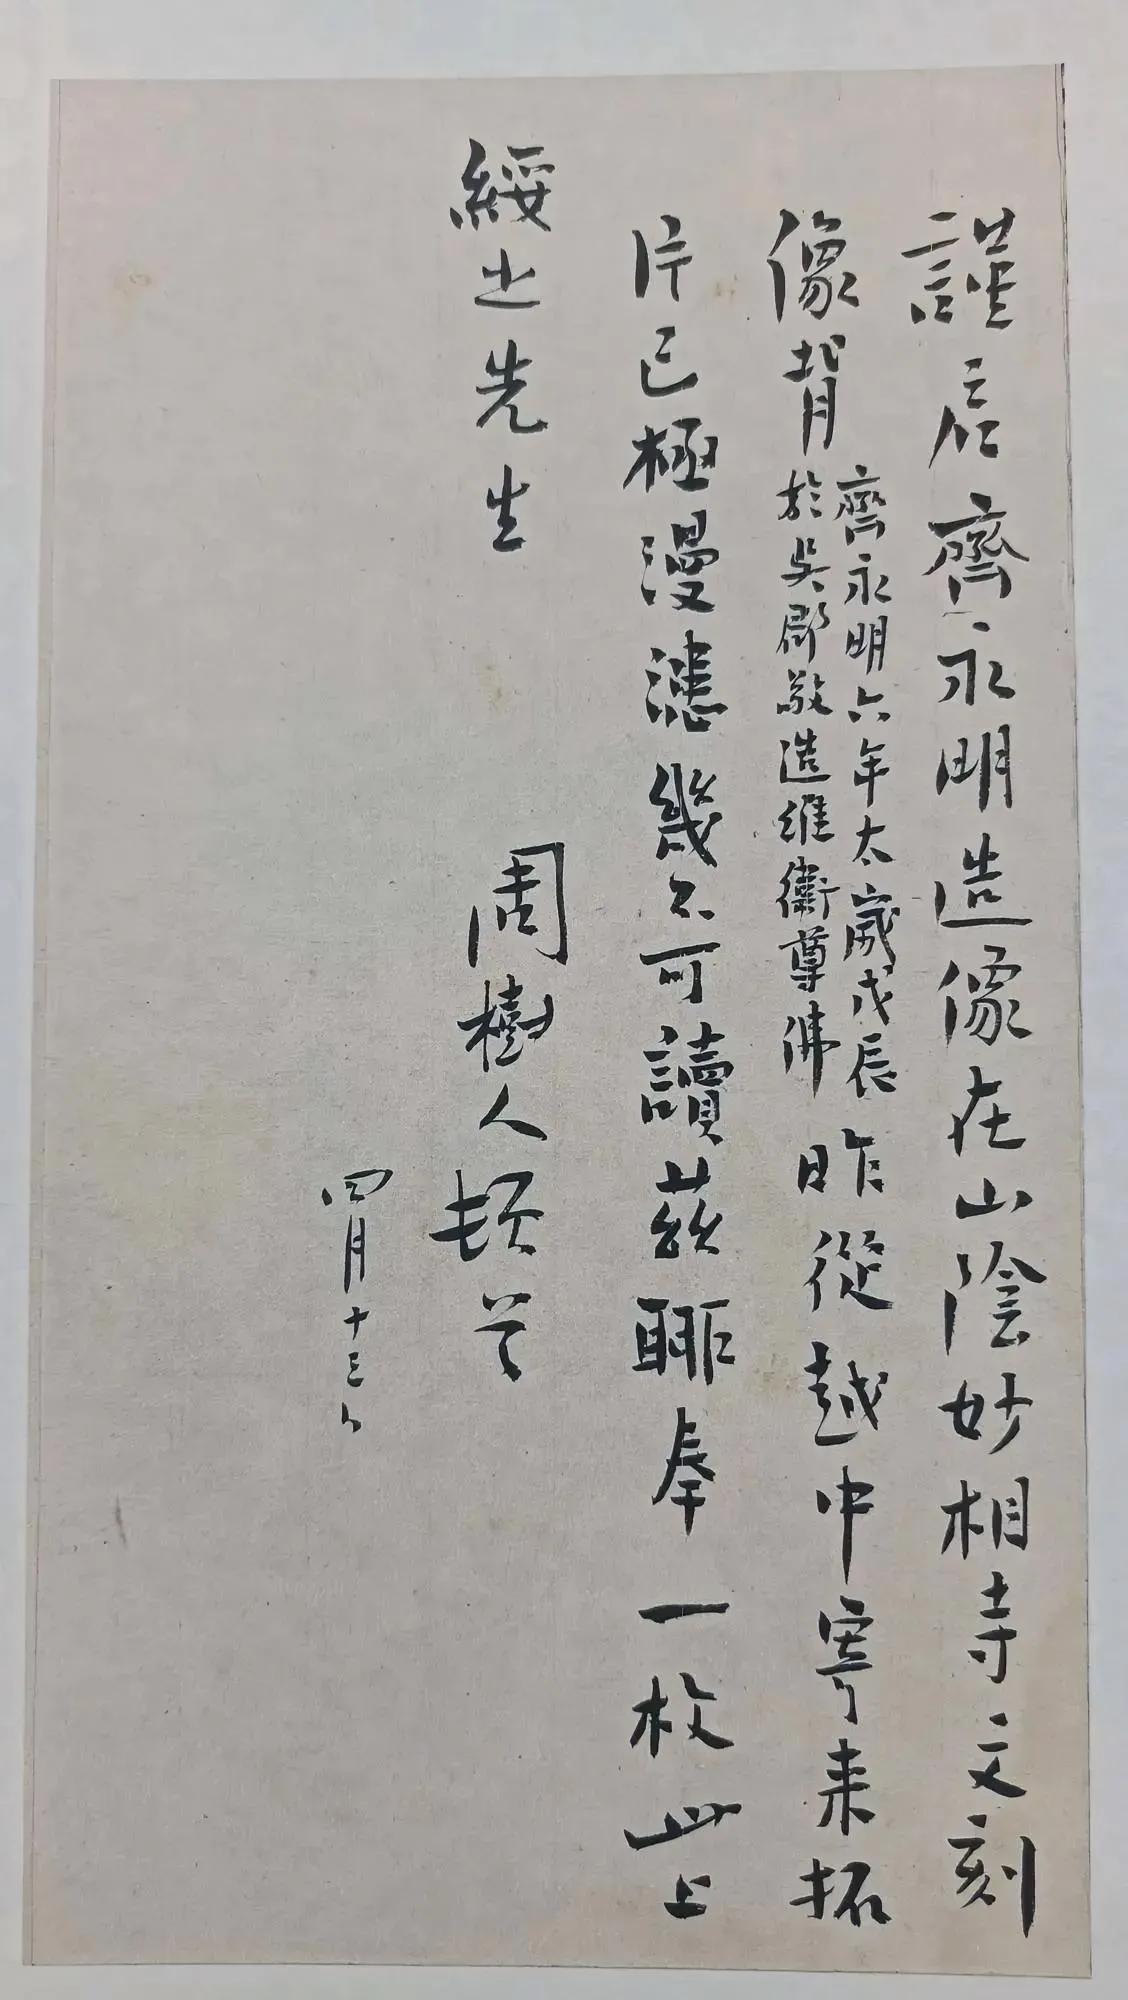 謹启齊永明造像在山陰妙相寺文刻
像背齊永明六年太歲戊辰
於吳郡敬造維衛尊佛昨從越中寄来拓
片已極漫漶幾不可讀茲聊奉一枚此上
綏之先生
周樹人頓首
四月十三日